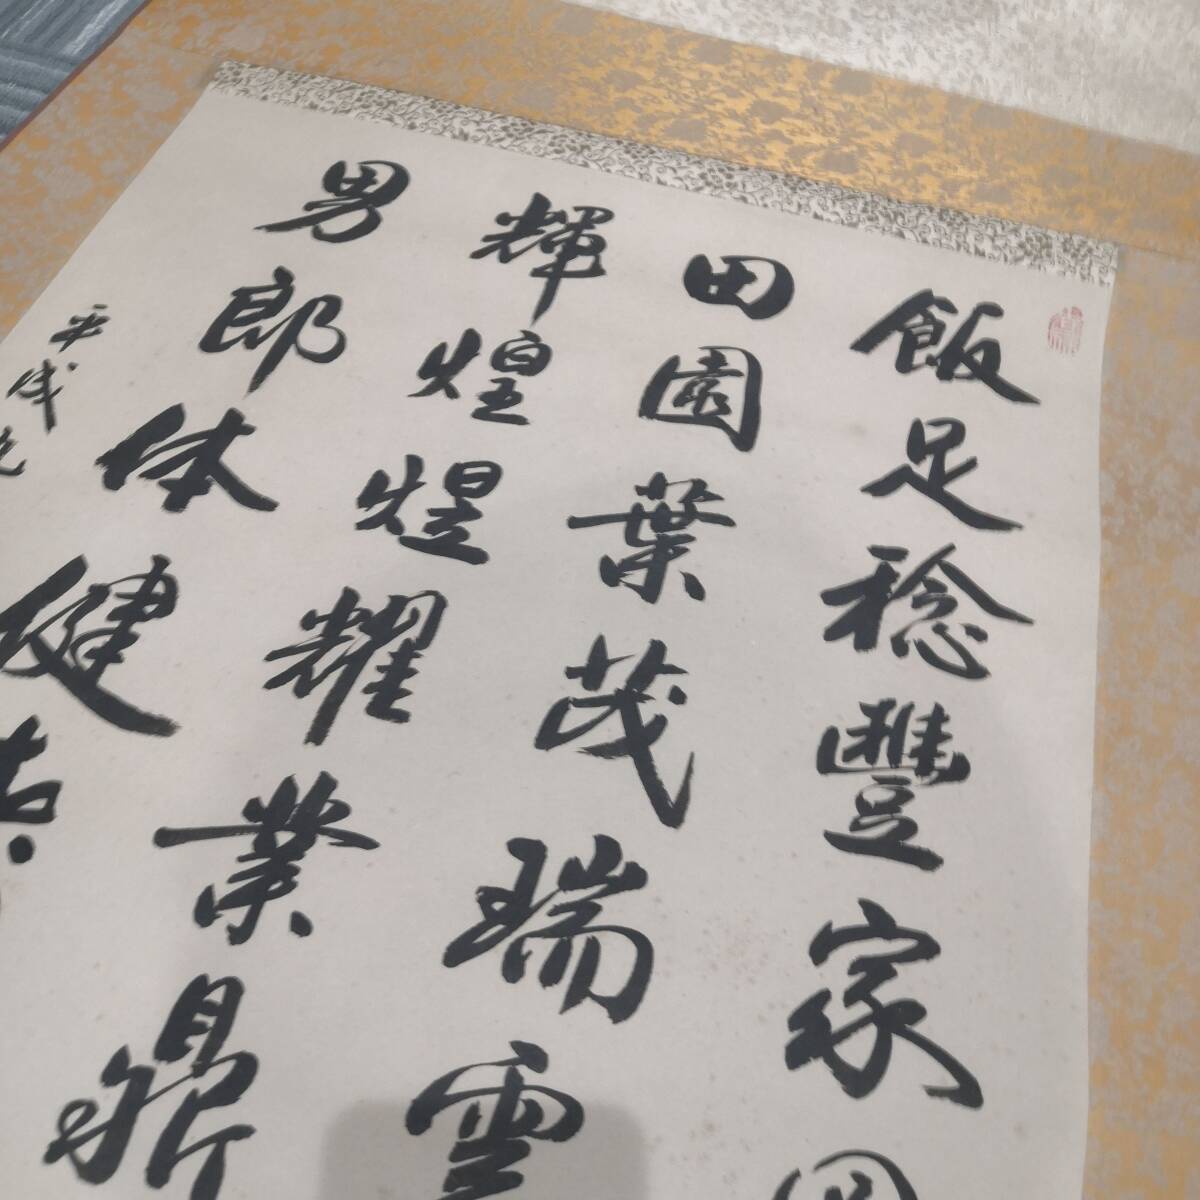 飯足稔豐家
田園葉茂瑞雲
輝煌煜耀業鼎
男郎体健
平成